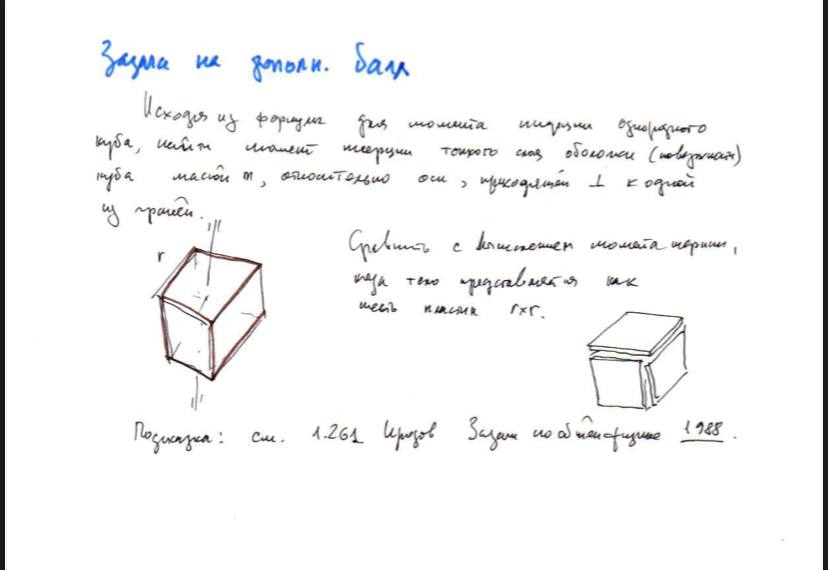 Задача на дополн. балл
Исходя из формулы для момента инерции однородного
куба, найти момент инерции тонкого слоя оболочки (поверхности)
куба массой m, относительно оси, проходящей ⊥ к одной
из граней.
r
Сравнить с вычислением момента инерции,
когда тело представляется как
шесть пластин r×r.
Подсказка: см. 1.261 Иродов Задачи по общей физике 1988.